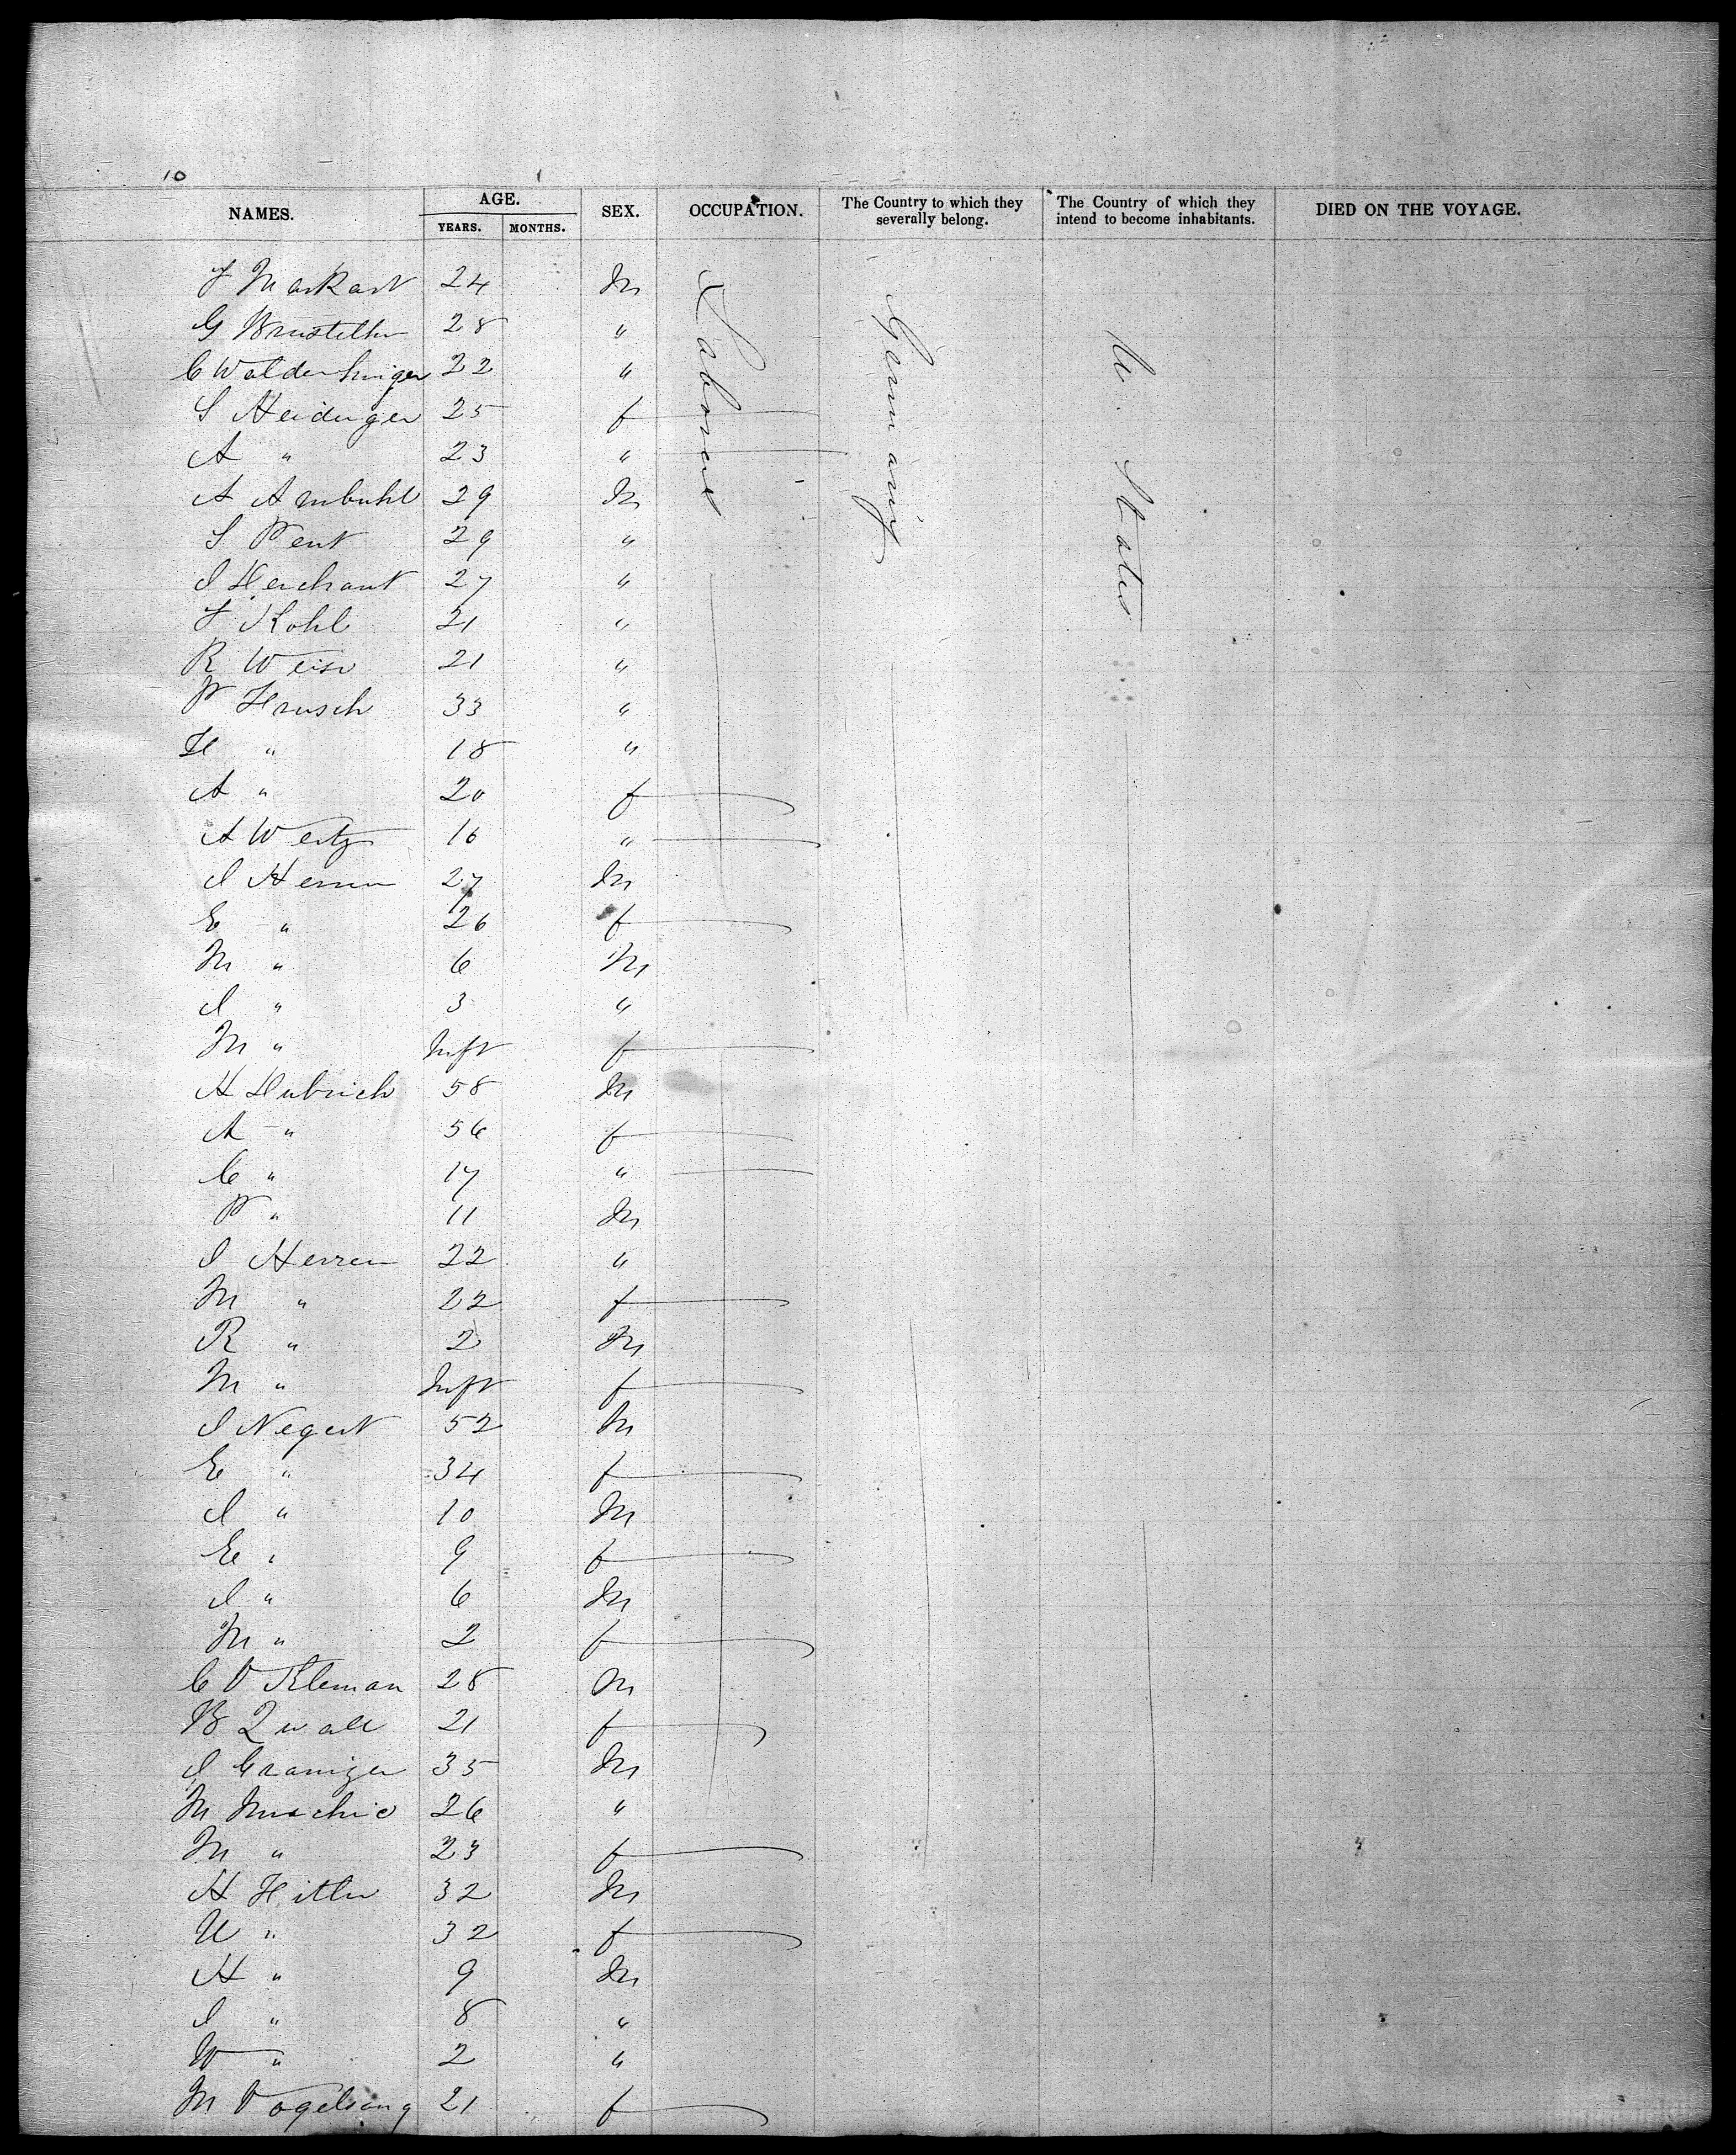 10
NAMES. AGE. YEARS. MONTHS. SEX. OCCUPATION. The Country to which they severally belong. The Country of which they intend to become inhabitants. DIED ON THE VOYAGE.
F Markart 24 M Laborer Germany U. States
G 28 "
C Waldenhinger 22 "
S Heidinger 25 f
A " 23 "
A Ambuhl 29 M
S Pent 29 "
J Herchant 27 "
F Kohl 21 "
R Weise 21 "
P Hrusch 33 "
H " 18 "
A " 20 f
A Wertz 16 "
J Herren 27 M
E " 26 f
M " 6 M
J " 3 "
M " Inft f
H Hubrich 58 M
A " 56 f
C " 17 "
P " 11 M
J Herren 22 "
M " 22 f
R " 2 M
M " Inft f
J Negert 52 M
E " 34 f
J " 10 M
E " 9 f
J " 6 M
M " 2 f
C V Kleman 28 M
B 21 f
J Craniger 35 M
M 26 "
M " 23 f
H Hitler 32 M
U " 32 f
H " 9 M
J " 8 "
W " 2 "
M Vogelsang 21 f